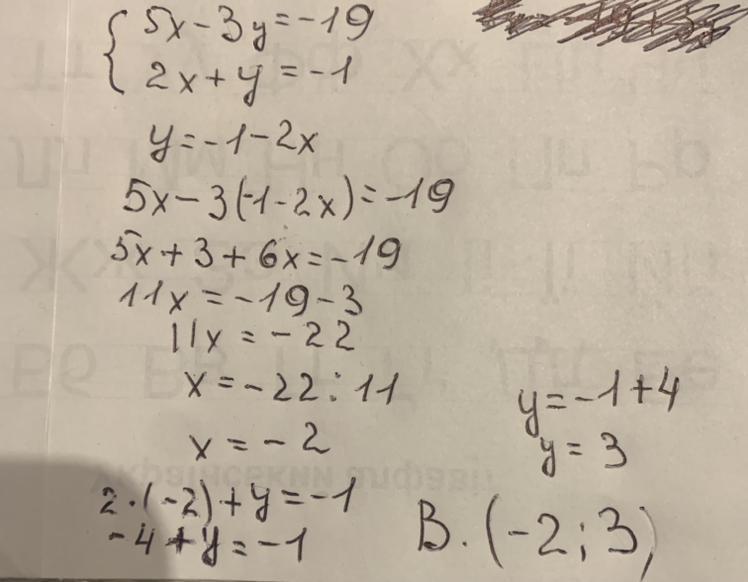 5x-3y=-19
2x+y=-1
y=-1-2x
5x-3(-1-2x)=-19
5x+3+6x=-19
11x=-19-3
11x=-22
x=-22:11
x=-2
2·(-2)+y=-1
-4+y=-1
y=-1+4
y=3
В. (-2;3)